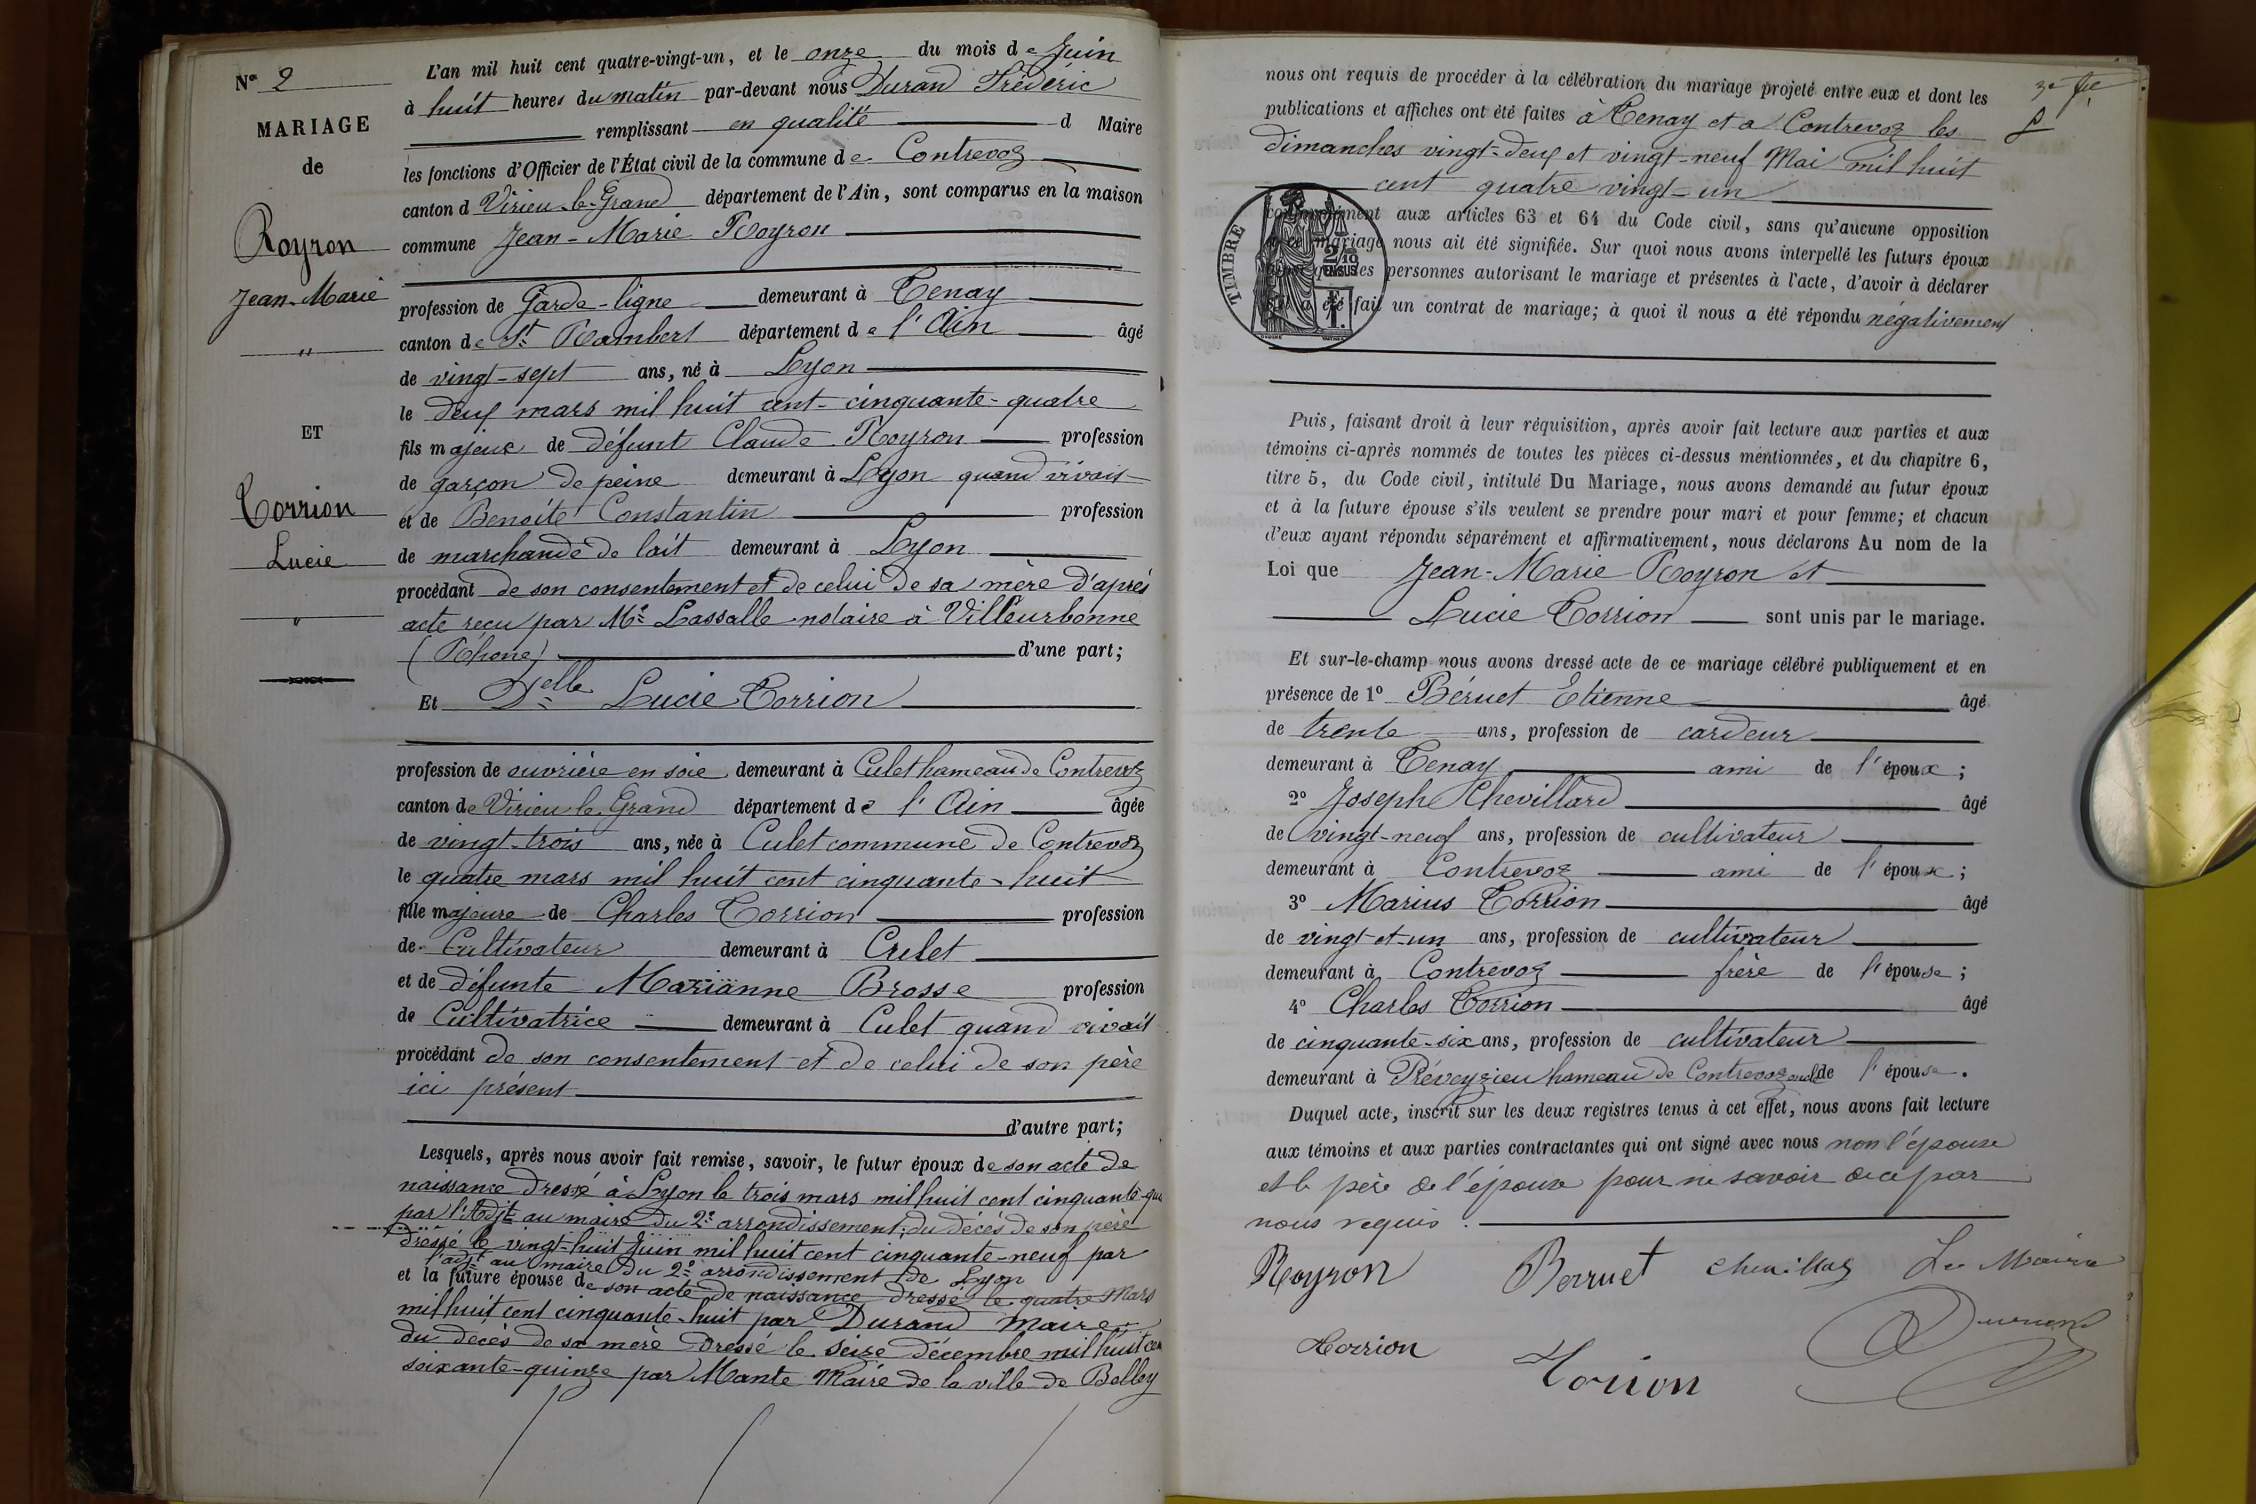 N° 2
MARIAGE
de
Royron
Jean-Marie
"
ET
Torrion
Lucie
"
L'an mil huit cent quatre-vingt-un, et le onze du mois de Juin
à huit heures du matin par-devant nous Durand Frédéric
remplissant en qualité d Maire
les fonctions d'Officier de l'État civil de la commune de Contrevoz
canton d Virieu-le-Grand département de l'Ain, sont comparus en la maison
commune Jean-Marie Royron
profession de Garde-ligne demeurant à Tenay
canton de St Rambert département de l'Ain âgé
de vingt-sept ans, né à Lyon
le deux mars mil huit cent-cinquante-quatre
fils majeur de défunt Claude Royron profession
de garçon de peine demeurant à Lyon quand vivait
et de Benoîte Constantin profession
de marchande de lait demeurant à Lyon
procédant de son consentement et de celui de sa mère d'après
acte reçu par Me Lassalle notaire à Villeurbonne
(Rhône) d'une part;
Et Delle Lucie Torrion
profession de ouvrière en soie demeurant à Culet hameau de Contrevoz
canton de Virieu-le-Grand département de l'Ain âgée
de vingt-trois ans, née à Culet commune de Contrevoz
le quatre mars mil huit cent cinquante-huit
fille majeure de Charles Torrion profession
de Cultivateur demeurant à Culet
et de défunte Marianne Brosse profession
de Cultivatrice demeurant à Culet quand vivait
procédant de son consentement et de celui de son père
ici présent
d'autre part;
Lesquels, après nous avoir fait remise, savoir, le futur époux de son acte de
naissance dressé à Lyon le trois mars mil huit cent cinquante-qua
par l'Adjt au maire du 2e arrondissement; du décès de son père
dressé le vingt-huit Juin mil huit cent cinquante-neuf par
l'adjt au maire du 2e arrondissement de Lyon
et la future épouse de son acte de naissance dressé le quatre Mars
mil huit cent cinquante-huit par Durand maire
du décès de sa mère dressé le seize décembre mil huit cen
soixante-quinze par Mante Maire de la ville de Belley
3e
nous ont requis de procéder à la célébration du mariage projeté entre eux et dont les
publications et affiches ont été faites à Tenay et a Contrevoz les
dimanches vingt-deux et vingt-neuf Mai mil huit
cent quatre vingt-un
conformément aux articles 63 et 64 du Code civil, sans qu'aucune opposition
à ce mariage nous ait été signifiée. Sur quoi nous avons interpellé les futurs époux
ainsi que les personnes autorisant le mariage et présentes à l'acte, d'avoir à déclarer
s'il a été fait un contrat de mariage; à quoi il nous a été répondu négativement
TIMBRE
2/10
EN SUS
1 F.
Puis, faisant droit à leur réquisition, après avoir fait lecture aux parties et aux
témoins ci-après nommés de toutes les pièces ci-dessus mentionnées, et du chapitre 6,
titre 5, du Code civil, intitulé Du Mariage, nous avons demandé au futur époux
et à la future épouse s'ils veulent se prendre pour mari et pour femme; et chacun
d'eux ayant répondu séparément et affirmativement, nous déclarons Au nom de la
Loi que Jean-Marie Royron et
Lucie Torrion sont unis par le mariage.
Et sur-le-champ nous avons dressé acte de ce mariage célébré publiquement et en
présence de 1° Béruet Etienne âgé
de trente ans, profession de cardeur
demeurant à Tenay ami de l'époux;
2° Joseph Chevillard âgé
de vingt-neuf ans, profession de cultivateur
demeurant à Contrevoz ami de l'époux;
3° Marius Torrion âgé
de vingt-et-un ans, profession de cultivateur
demeurant à Contrevoz frère de l'épouse;
4° Charles Torrion âgé
de cinquante-six ans, profession de cultivateur
demeurant à Préveyzieu hameau de Contrevoz oncle de l'épouse.
Duquel acte, inscrit sur les deux registres tenus à cet effet, nous avons fait lecture
aux témoins et aux parties contractantes qui ont signé avec nous non l'épouse
et le père de l'épouse pour ne savoir de ce par
nous requis.
Royron Berruet Chevillard Le Maire
Durand
Torrion Torrion